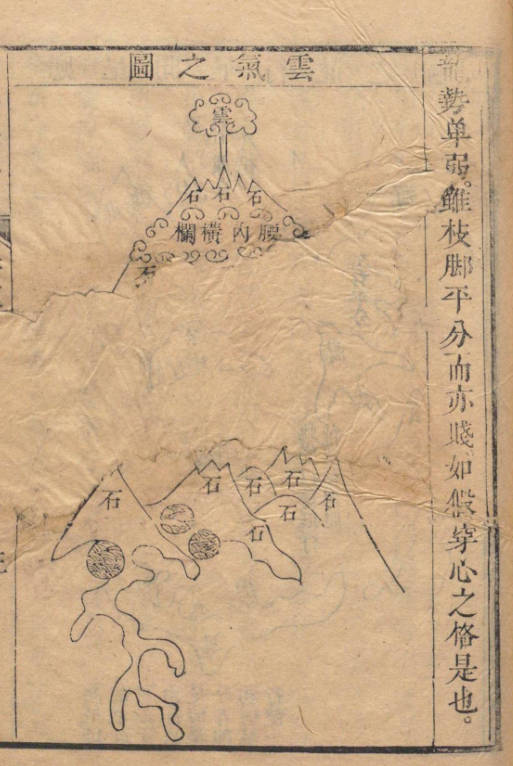 龍勢单弱。雖枝脚平分而亦賤。如假穿心之格是也。
雲氣之圖
雲
石 石 石
腰内橫欄
石
石 石 石 石
石 石
石